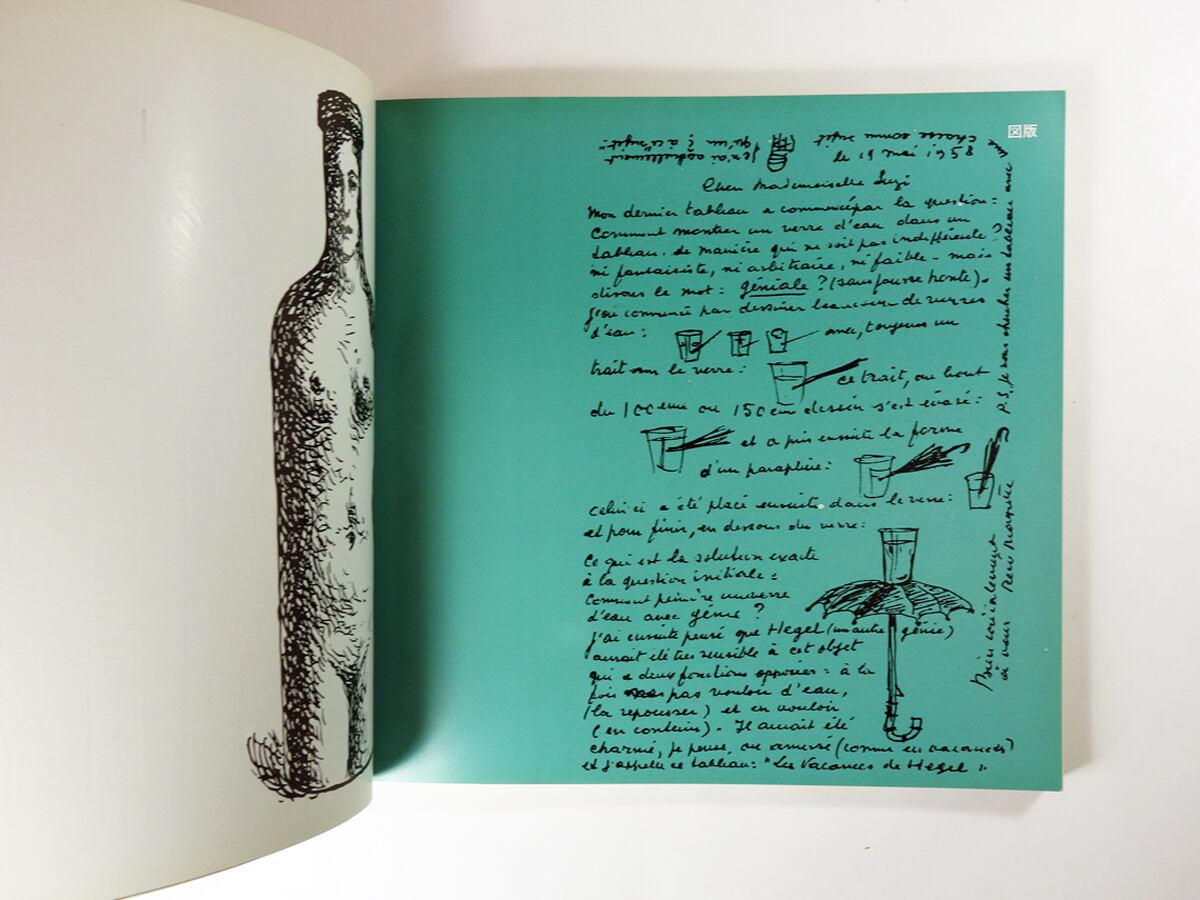 図版
le 19 mai 1958
Chère Mademoiselle Suzi
Mon dernier tableau a commencé par la question:
Comment montrer un verre d'eau dans un
tableau de manière qui ne soit pas indifférente?
ni fantaisiste, ni arbitraire, ni faible - mais
disons le mot: géniale? (sans fausse honte).
J'ai commencé par dessiner beaucoup de verres
d'eau:
avec, toujours un
trait sur le verre:
ce trait, au bout
du 100ème ou 150em dessin s'est évasé:
et a pris ensuite la forme
d'un parapluie:
celui ci a été placé ensuite dans le verre:
et pour finir, en dessous du verre:
Ce qui est la solution exacte
à la question initiale:
Comment peindre un verre
d'eau avec génie?
J'ai ensuite pensé que Hegel (un autre génie)
aurait été très sensible à cet objet
qui a deux fonctions opposées: à la
fois pas vouloir d'eau,
(la repousser) et en vouloir
(en contenir). Il aurait été
charmé, je pense, ou amusé (comme en vacances)
et j'appelle ce tableau: "Les Vacances de Hegel".
Bien cordialement
à vous René Magritte
P.S. Je vous cherche un tableau avec une
chasse comme sujet
Je n'ai actuellement
qu'un ? à ce "sujet".